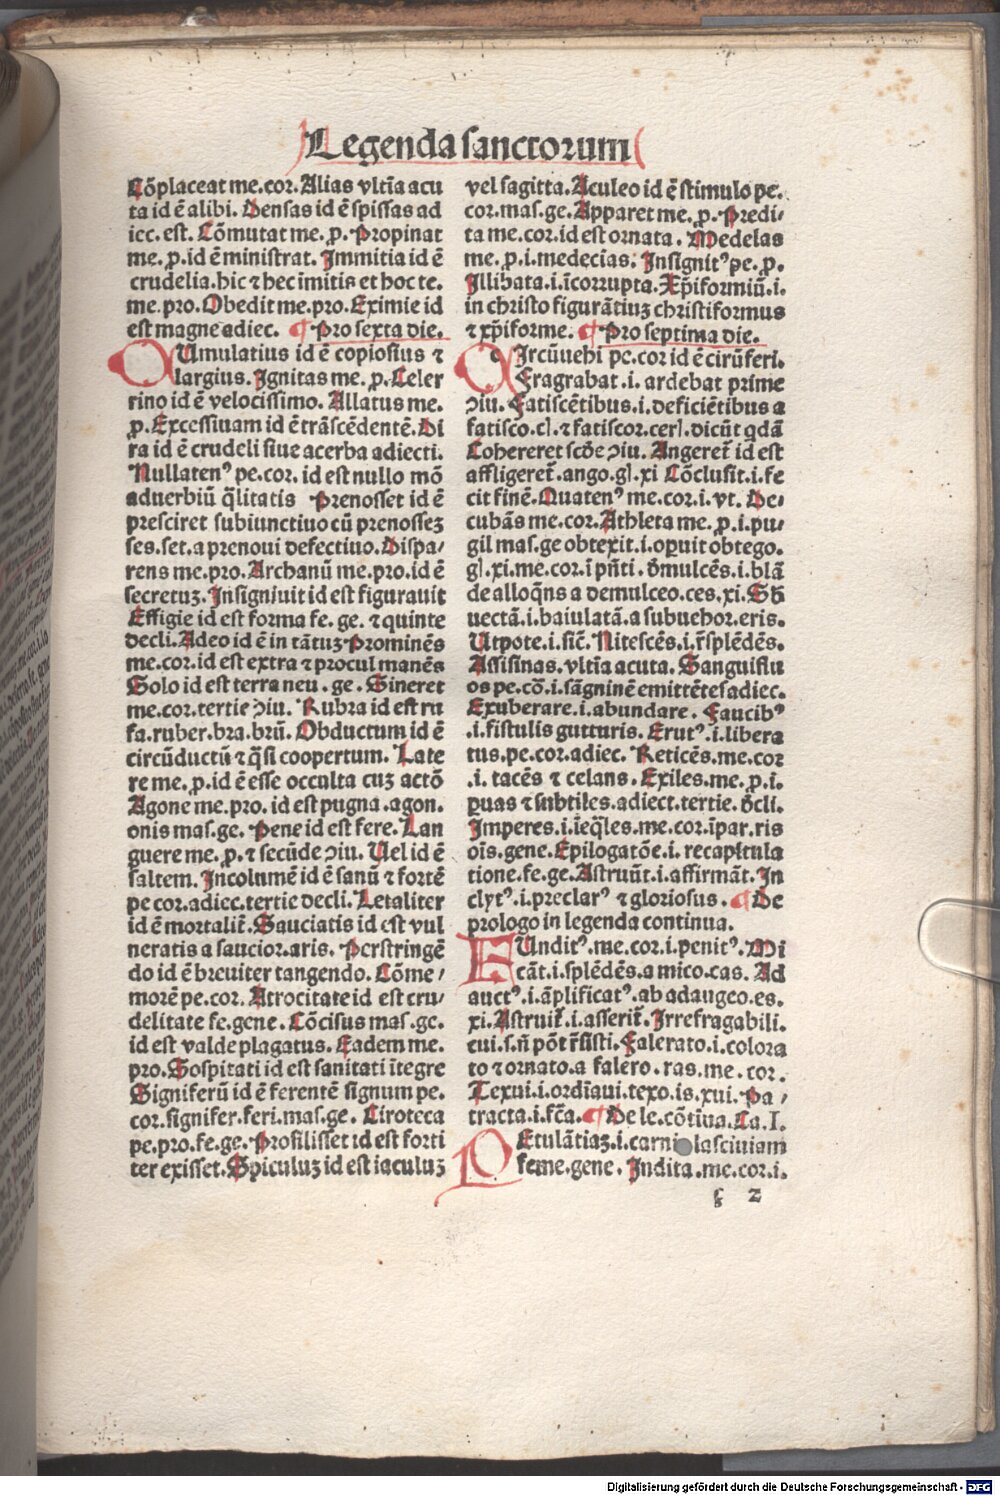 Legenda sanctorum
Cōplaceat me.cor. Alias vltīa acu
ta id ē alibi. Densas id ē spissas ad
iec. est. Cōmutat me. p. Propinat
me. p. id ē ministrat. Immitia id ē
crudelia. hic ⁊ hec imitis et hoc te.
me. pro. Obedit me. pro. Eximie id
est magne adiec. ¶ Pro sexta die.
CUmulatius id ē copiosius ⁊
largius. Ignitas me. p. Celer
rino id ē velocissimo. Allatus me.
p. Excessiuam id ē trāscēdentē. Di
ra id ē crudeli siue acerba adiecti.
Nullatenꝰ pe. cor. id est nullo mō
aduerbiū q̄litatis Prenosset id ē
presciret subiunctiuo cū prenossez
ses. set. a prenoui defectiuo. Dispa/
rens me. pro. Archanū me. pro. id ē
secretuz. Insigniuit id est figurauit
Effigie id est forma fe. ge. ⁊ quinte
decli. Adeo id ē in tātuz Prominēs
me. cor. id est extra ⁊ procul manēs
Solo id est terra neu. ge. Sineret
me. cor. tertie ꝯiu. Rubra id est ru
fa. ruber. bra. brū. Obductum id ē
circūductū ⁊ q̄si coopertum. Late
re me. p. id ē esse occulta cuz actō
Agone me. pro. id est pugna. agon.
onis mas. ge. Pene id est fere. Lan
guere me. p. ⁊ secūde ꝯiu. Uel id ē
saltem. Incolumē id ē sanū ⁊ fortē
pe cor. adiec. tertie decli. Letaliter
id ē mortalit̄. Sauciatis id est vul
neratis a saucior. aris. Perstringē
do id ē breuiter tangendo. Cōme/
morē pe. cor. Atrocitate id est cru/
delitate fe. gene. Cōcisus mas. ge.
id est valde plagatus. Eadem me.
pro. Sospitati id est sanitati ītegre
Signiferū id ē ferentē signum pe.
cor. signifer. feri. mas. ge. Ciroteca
pe. pro. fe. ge. Prosilisset id est forti
ter exisset. Spiculuz id est iaculuz
vel sagitta. Aculeo id ē stimulo pe.
cor. mas. ge. Apparet me. p. Predi/
ta me. cor. id est ornata. Medelas
me. p. i. medecias. Insignitꝰ pe. p.
Illibata. i. īcorrupta. Xp̄iformiū. i.
in christo figurātiuz christiformus
⁊ xp̄iforme. ¶ Pro septima die.
CIrcūuehi pe. cor id ē cirūferi.
Fragrabat. i. ardebat prime
ꝯiu. Fatiscētibus. i. deficiētibus a
fatisco. cꝭ. ⁊ fatiscor. cerꝭ. dicūt qdā
Cohereret scd̄e ꝯiu. Angeret̄ id est
affligeret̄. ango. gꝭ. xi Cōclusit. i. fe
cit finē. Quatenꝰ me. cor. i. vt. De/
cubās me. cor. Athleta me. p. i. pu/
gil mas. ge obtexit. i. operuit obtego.
gꝭ. xi. me. cor. ī pn̄ti. Dmulcēs. i. blā
de alloqn̄s a demulceo. ces. xi. Sb
uectā. i. baiulatā. a subuehor. eris.
Utpote. i. sic̄. Nitescēs. i. r̄splēdēs.
Assisinas. vltīa acuta. Sanguiflu
os pe. cō. i. sāgninē emittētes adiec.
Exuberare. i. abundare. Faucibꝰ
. i. fistulis gutturis. Erutꝰ. i. libera
tus. pe. cor. adiec. Reticēs. me. cor
. i. tacēs ⁊ celans. Exiles. me. p. i.
puas ⁊ subtiles. adiect. tertie. d̄cli.
Imperes. i. īeq̄les. me. cor. īpar. ris
oīs. gene. Epilogatōe. i. recapitula
tione. fe. ge. Astruūt. i. affirmāt. In
clytꝰ. i. preclarꝰ ⁊ gloriosus. ¶ De
prologo in legenda continua.
EUnditꝰ. me. cor. i. penitꝰ. Mi
cāt. i. splēdēs. a mico. cas. Ad
auctꝰ. i. āplificatꝰ. ab adaugeo. es.
xi. Astruit̄. i. asserit̄. Irrefragabili.
cui. s. n̄ pōt r̄sisti. Falerato. i. colora
to ⁊ ornato. a falero. ras. me. cor.
Texui. i. ordīaui. texo. is. xui. Pa/
tracta. i. fc̄a. ¶ De le. cōtiua. Ca. I.
PEtulātiaz. i. carni lasciuiam
feme. gene. Indita. me. cor. i.
z
Digitalisierung gefördert durch die Deutsche Forschungsgemeinschaft - DFG